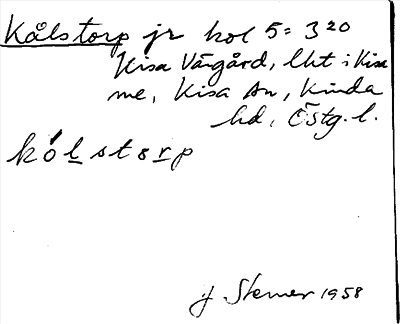 Kålstorp jr kol 5: 320
Kisa Vårgård, lht i Kisa
me, Kisa sn, Kinda
hd, Östg. l.
kólstorp
J. Sterner 1958